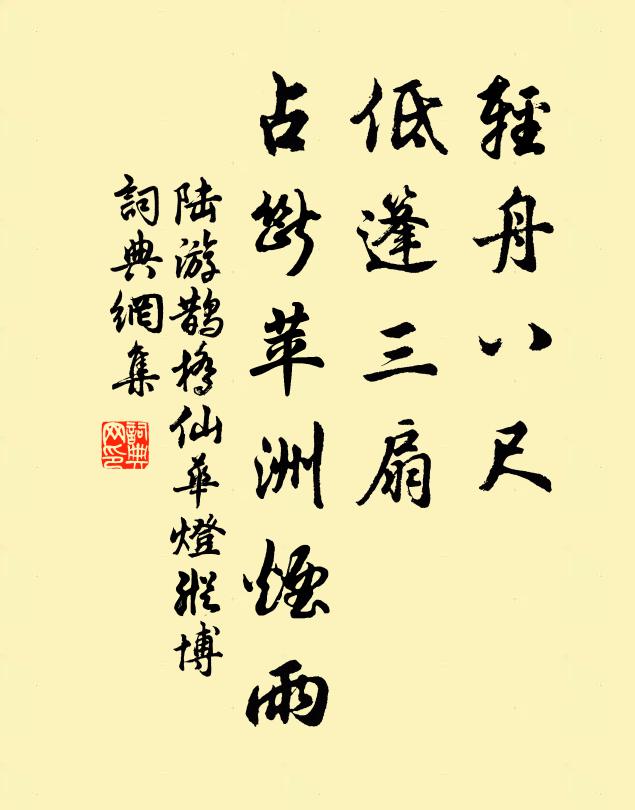 輕舟八尺
低篷三扇
占斷苹洲煙雨
陆游鵲橋仙華燈縱博
詞典網集
詞典网印